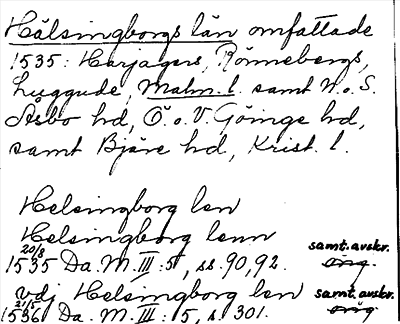 Hälsingborgs län omfattade
1535: Harjagers, Rönnebergs,
Luggude, Malm. l. samt N. o S.
Åsbo hd, Ö. o V. Göinge hd,
samt Bjäre hd, Krist. l.
Helsingborg len
Helsingborg lenn
samt. avskr.
20/8
1535 Da. M. III: 5, ss. 90, 92. orig.
vdj Helsingborg len samt. avskr.
21/5
1536 Da. M. III: 5, s. 301. orig.